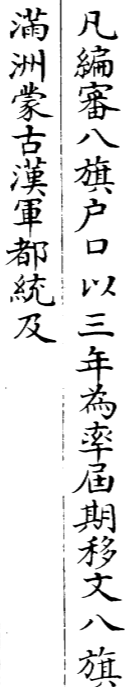 凡編審八旗户口以三年為率屆期移文八旗
滿洲蒙古漢軍都統及